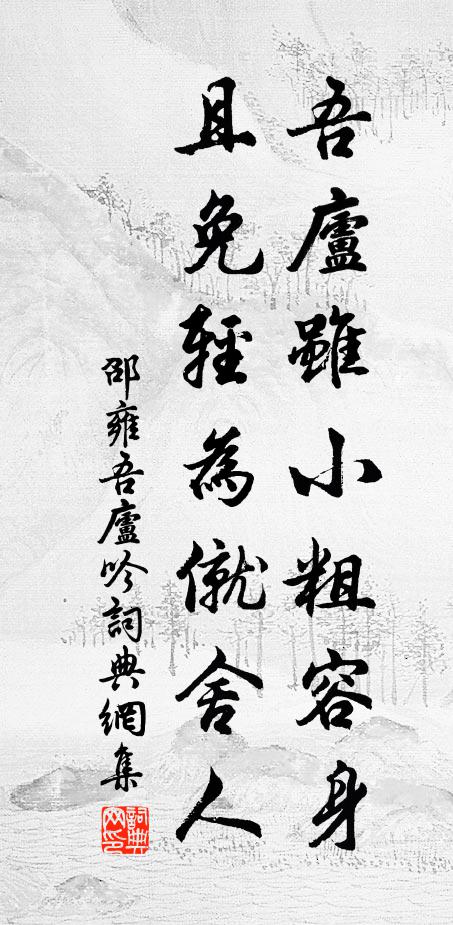 吾廬雖小粗容身
且免輕為僦舍人
邵雍吾廬吟詞典網集
詞典網印